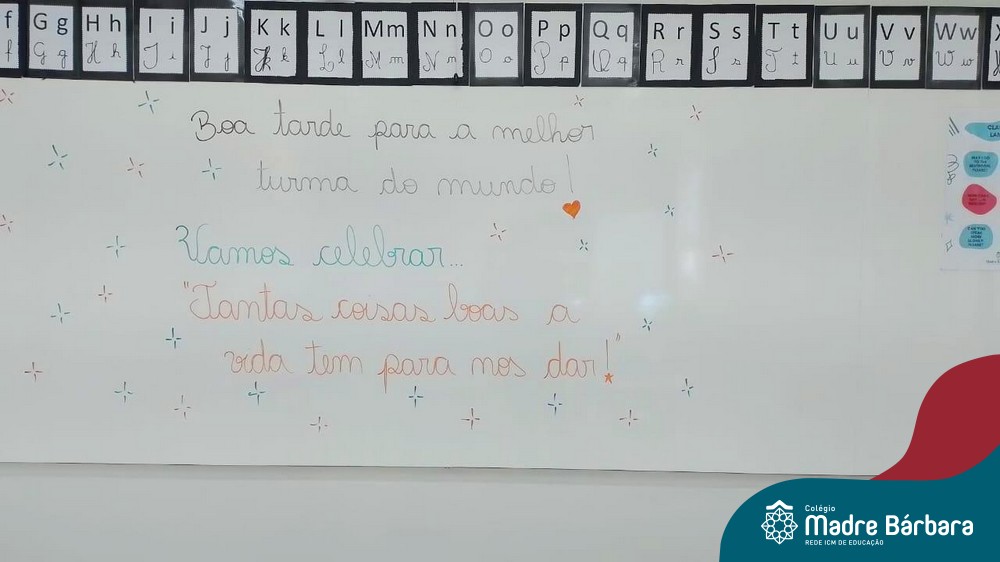 f G g H h I i J j K k L l M m N n O o P p Q q R r S s T t U u V v W w X
f G g H h I i J j K k L l M m N n O o P p Q q R r S s T t U u V v W w
Boa tarde para a melhor
turma do mundo!
Vamos celebrar...
"Tantas coisas boas a
vida tem para nos dar!"
Colégio
Madre Bárbara
REDE ICM DE EDUCAÇÃO